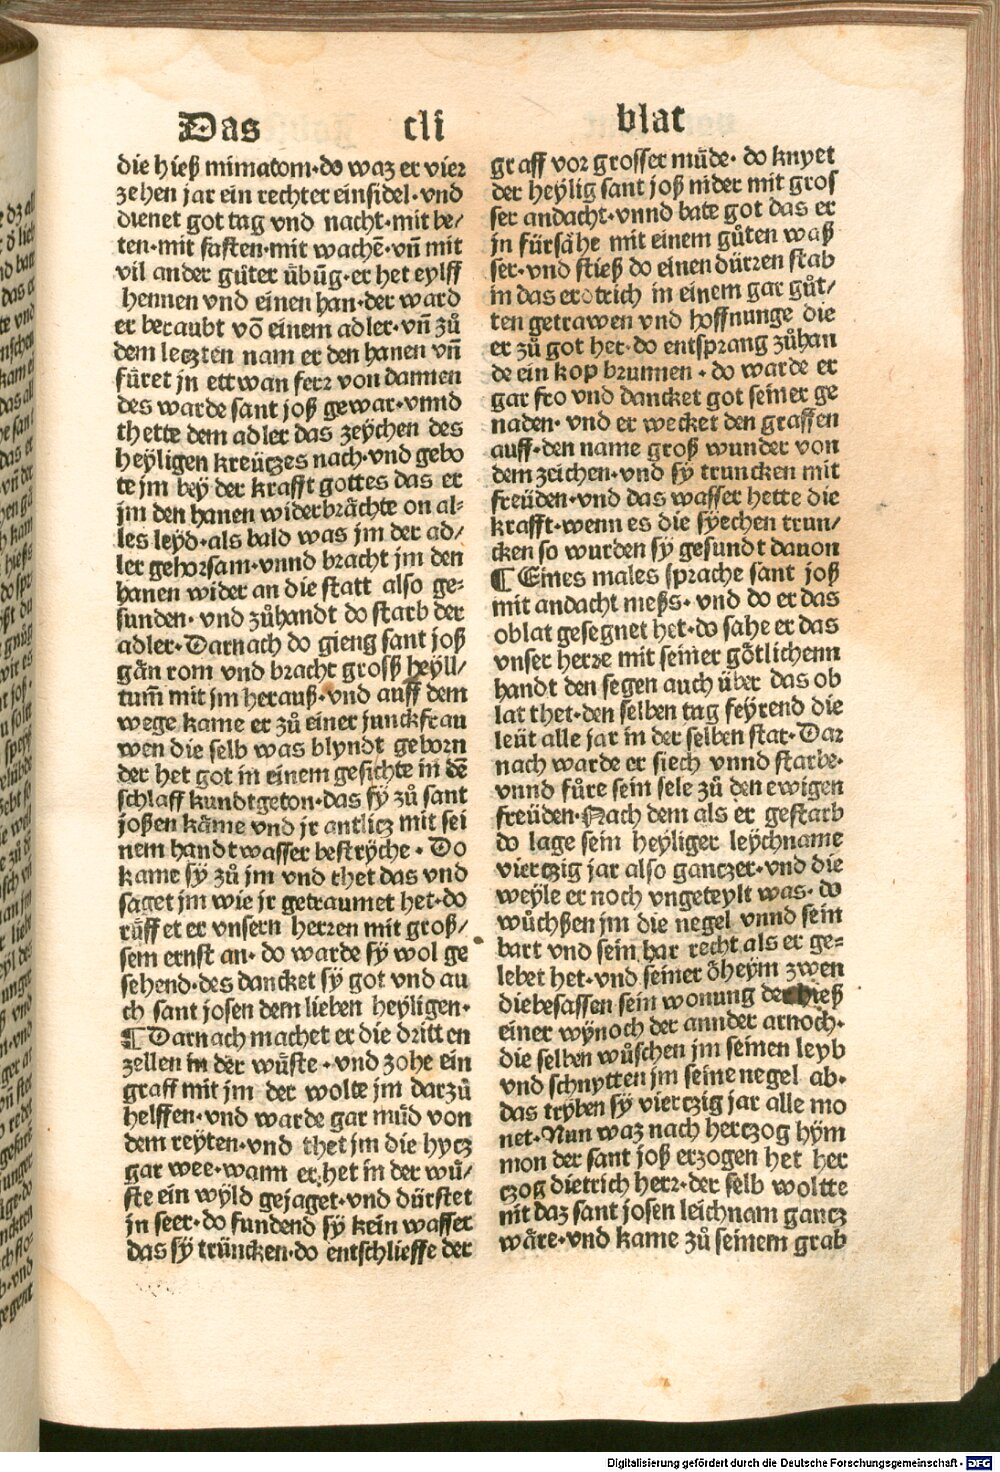 Das cli blat
die hieß mimatom·do waz er vier
zehen jar ein rechter einsidel·vnd
dienet got tag vnd nacht·mit be/
ten·mit fasten·mit wachē·vn̄ mit
vil ander gůter ůbūg·er het eylff
hennen vnd einen han·der ward
er beraubt vō einem adler·vn̄ zů
dem letzten nam er den hanen vn̄
fůret jn ettwan ferr von dannen
des warde sant joß gewar·vnnd
thette dem adler das zeychen des
heyligen kreützes nach·vnd gebo
te jm bey der krafft gottes das er
jm den hanen widerbrächte on al⸗
les leyd·als bald was jm der ad/
ler gehorsam·vnnd bracht jm den
hanen wider an die statt also ge⸗
sunden·vnd zůhandt do starb der
adler·Darnach do gieng sant joß
gän rom vnd bracht groß heyll/
tum̄ mit jm herauß·vnd auff dem
wege kame er zů einer junckfrau
wen die selb was blyndt geborn
der het got in einem gesichte in dē
schlaff kundtgeton·das sy zů sant
joßen käme vnd jr antlicz mit sei
nem handtwasser bestryche·Do
kame sy zů jm vnd thet das vnd
saget jm wie jr getraumet het·do
růffet er vnsern herren mit groß/
sem ernst an·do warde sy wol ge
sehend·des dancket sy got vnd au
ch sant josen dem lieben heyligen·
¶Darnach machet er die dritten
zellen in der wůste·vnd zohe ein
graff mit jm der wolte jm darzů
helffen·vnd warde gar můd von
dem reyten·vnd thet jm die hycz
gar wee·wann er het in der wů/
ste ein wyld gejaget·vnd dürstet
jn seer·do fundend sy kein wasser
das sy trüncken·do entschlieffe der
graff vor grosser můde·do knyet
der heylig sant joß nider mit gros
ser andacht·vnnd bate got das er
jn fürsähe mit einem gůten waß
ser·vnd stieß do einen dürren stab
in das erdtrich in einem gar gůt/
ten getrawen vnd hoffnunge die
er zů got het·do entsprang zůhan
de ein kop brunnen·do warde er
gar fro vnd dancket got seiner ge
naden·vnd er wecket den graffen
auff·den name groß wunder von
dem zeichen·vnd sy truncken mit
freüden·vnd das wasser hette die
krafft·wenn es die syechen trun/
cken so wurden sy gesundt dauon
¶Eines males sprache sant joß
mit andacht meßs·vnd do er das
oblat gesegnet het·do sahe er das
vnser herre mit seiner götlichenn
handt den segen auch über das ob
lat thet·den selben tag feyrend die
leüt alle jar in der selben stat·Dar
nach warde er siech vnnd starbe·
vnnd fůre sein sele zů den ewigen
freüden·Nach dem als er gestarb
do lage sein heyliger leychname
viertzig jar also gantzer·vnd die
weyle er noch vngeteylt was·do
wůchßen jm die negel vnnd sein
bart vnd sein har recht als er ge⸗
lebet het·vnd seiner öheym zwen
diebesassen sein wonung der hieß
einer wynoch der annder arnoch·
die selben wůschen jm seinen leyb
vnd schnytten jm seine negel ab·
das tryben sy viertzig jar alle mo
net·Nun waz nach hertzog hym
mon der sant joß erzogen het her
tzog dietrich herr·der selb woltte
nit daz sant josen leichnam gantz
wäre·vnd kame zů seinem grab
Digitalisierung gefördert durch die Deutsche Forschungsgemeinschaft - DFG